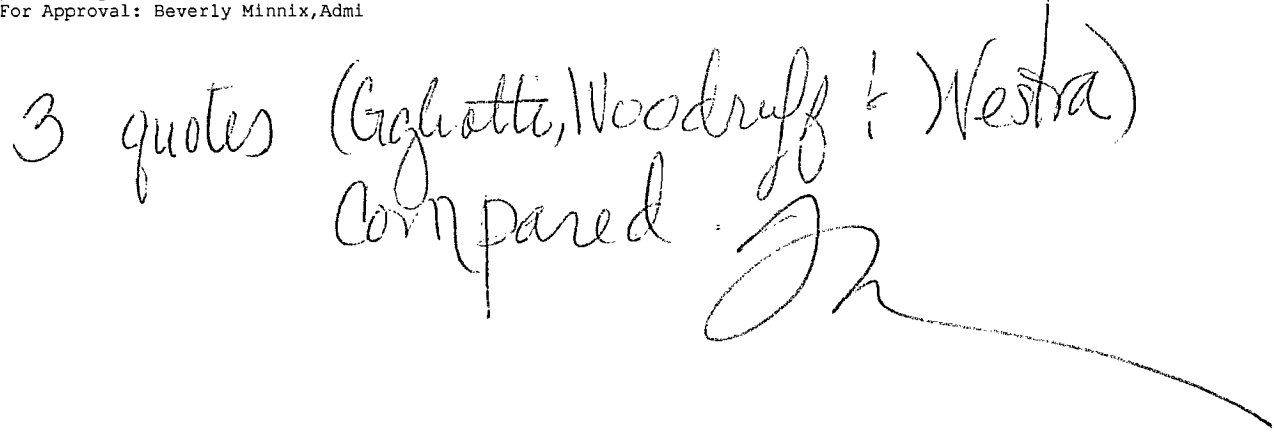 For Approval: Beverly Minnix,Admi
3 quotes (Gigliotti, Woodruff & Westra)
Compared.